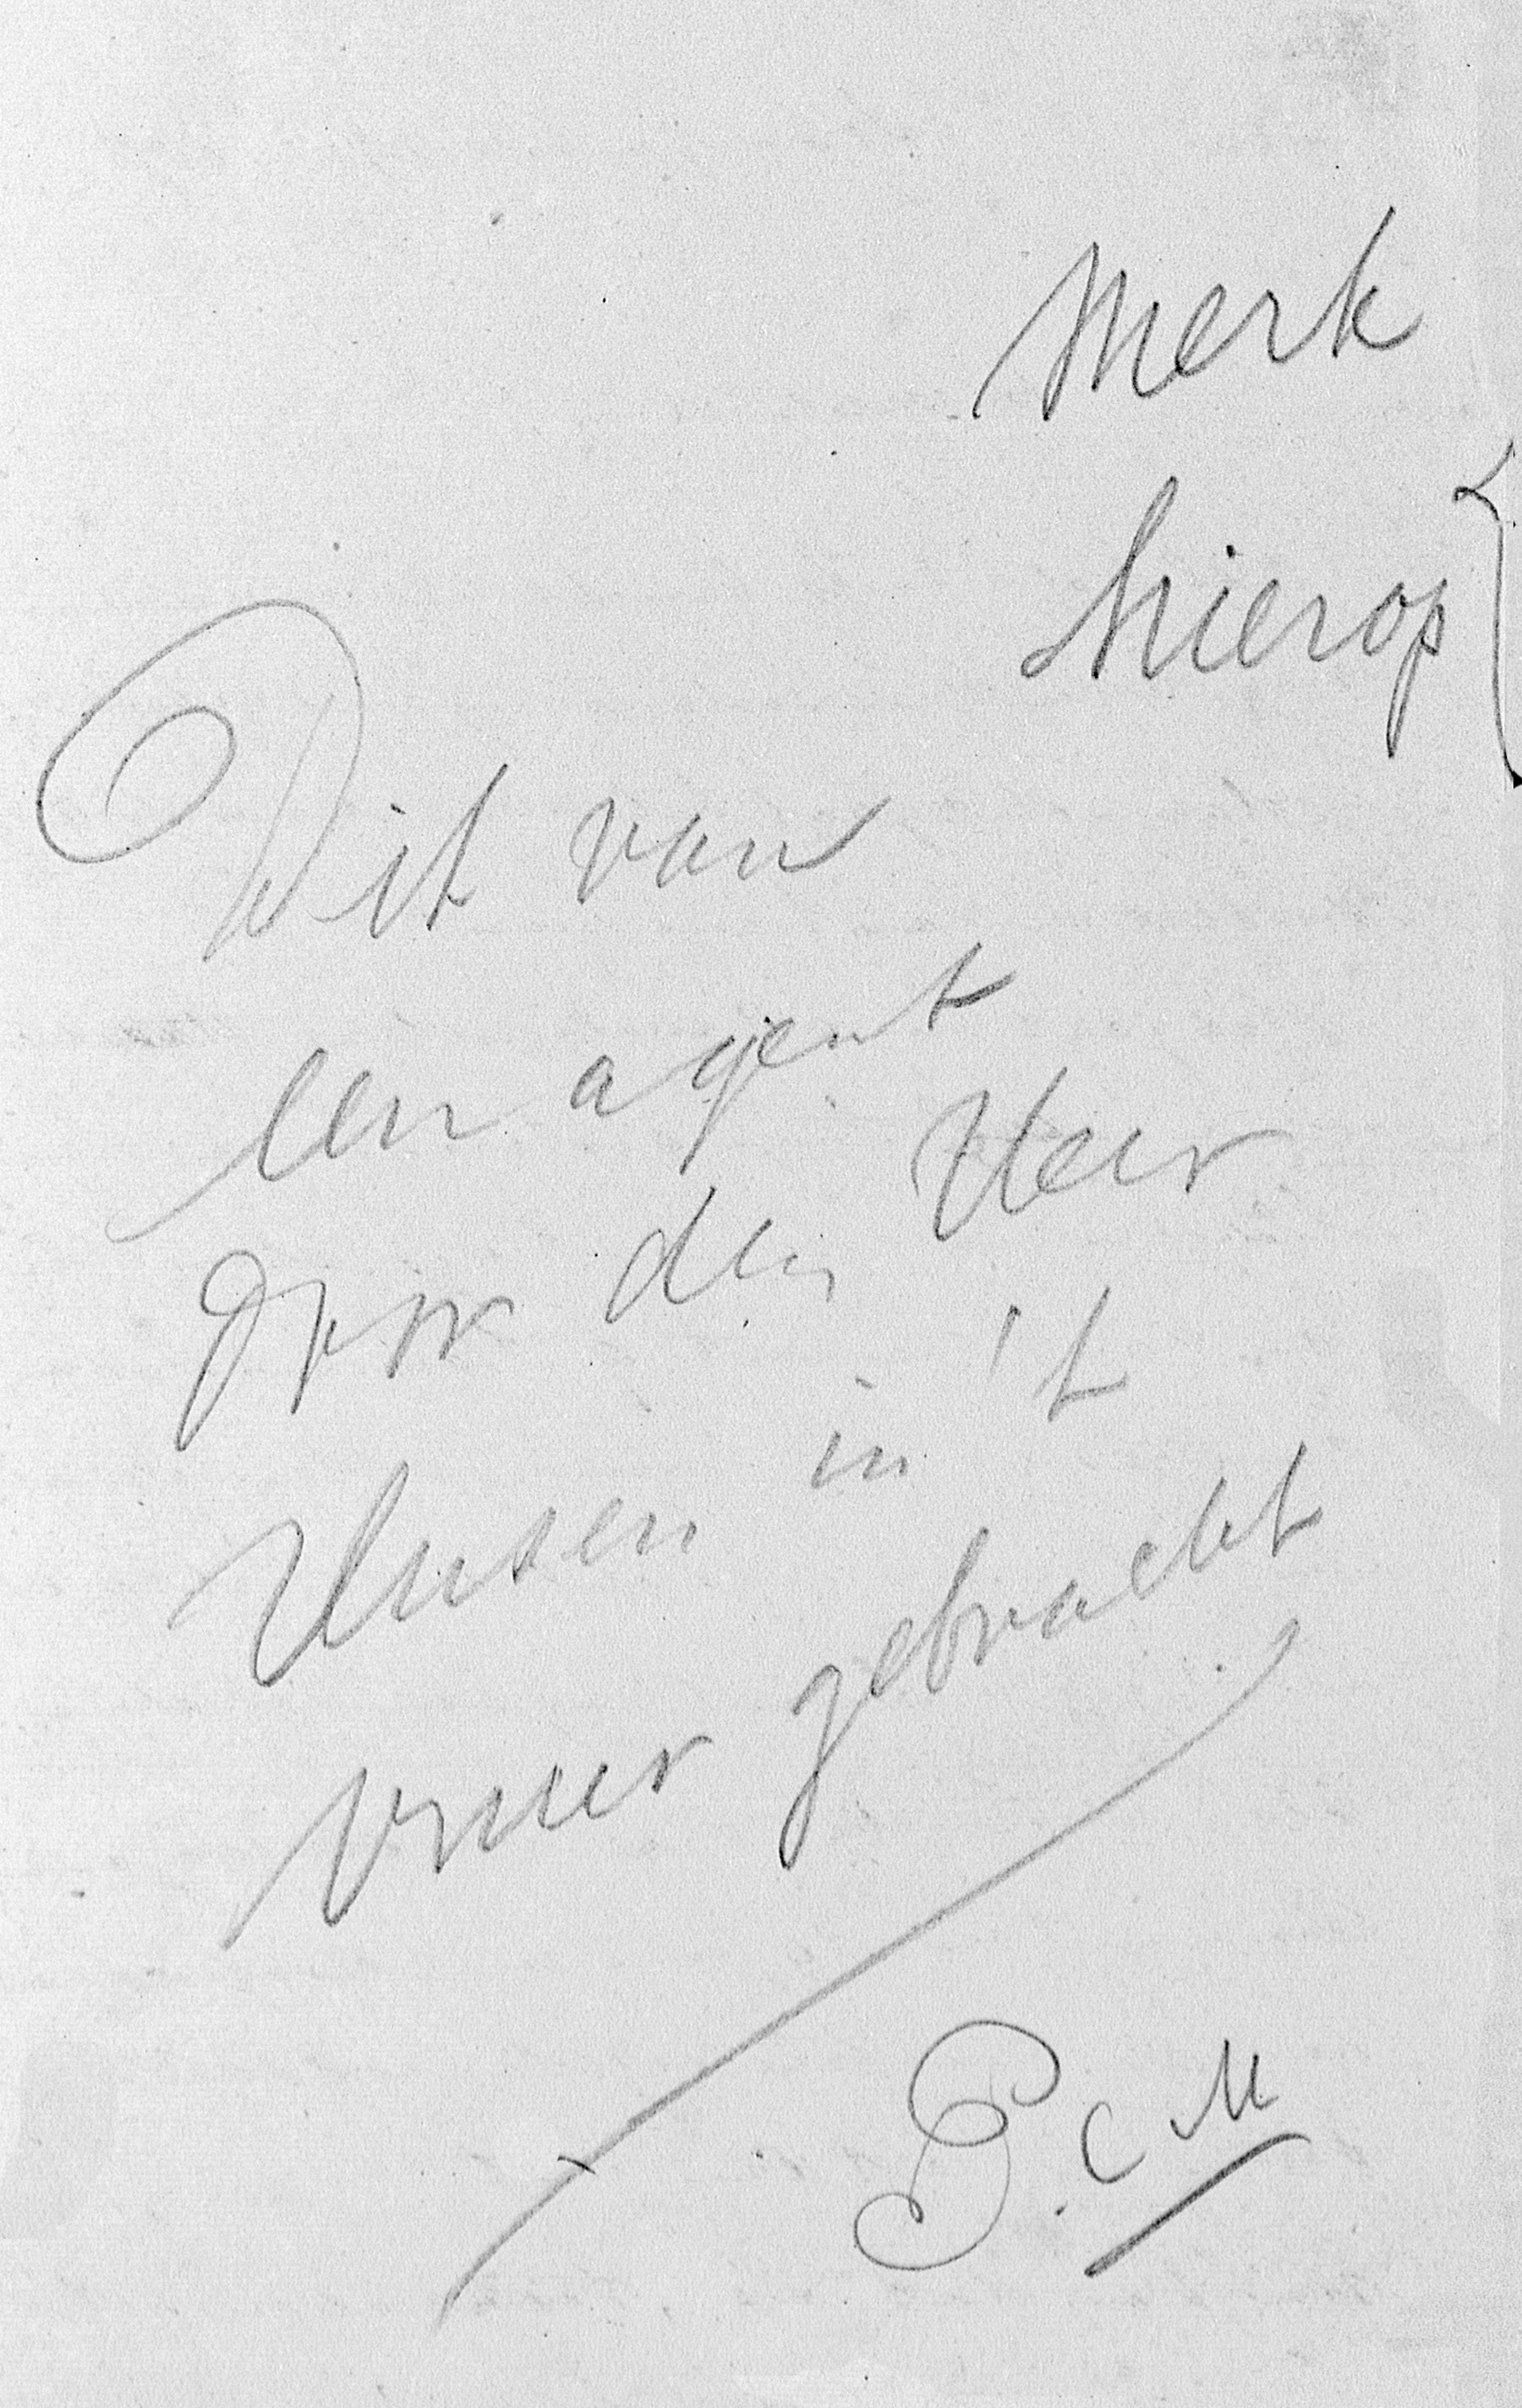 Merk
hierop
Dit van
een agent
door den Heer
in 't
vuur gebracht
P. C M